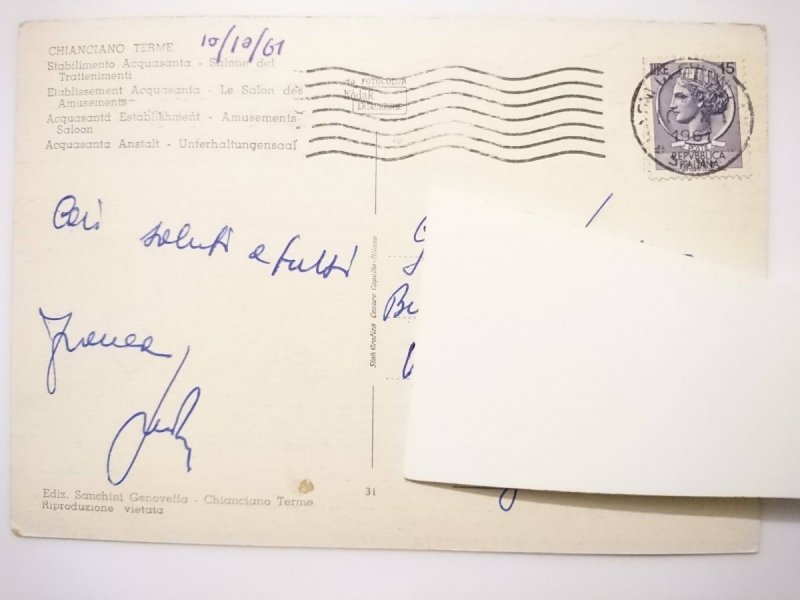 CHIANCIANO TERME
10/10/61
Stabilimento Acquasanta - Salone dei
Trattenimenti
Etablissement Acquasanta - Le Salon des
Amusements
Acquasanta Establishment - Amusements
Saloon
Acquasanta Anstalt - Unterhaltungensaal
FOTOCOLOR
Kodak
EKTACHROME
LIRE 15
1961
POSTE
REPVBBLICA
ITALIANA
Cari saluti a tutti
Franca
Stab. Grafico Cesare Capello - Milano
Ediz. Sanchini Genovetta - Chianciano Terme
Riproduzione vietata
31